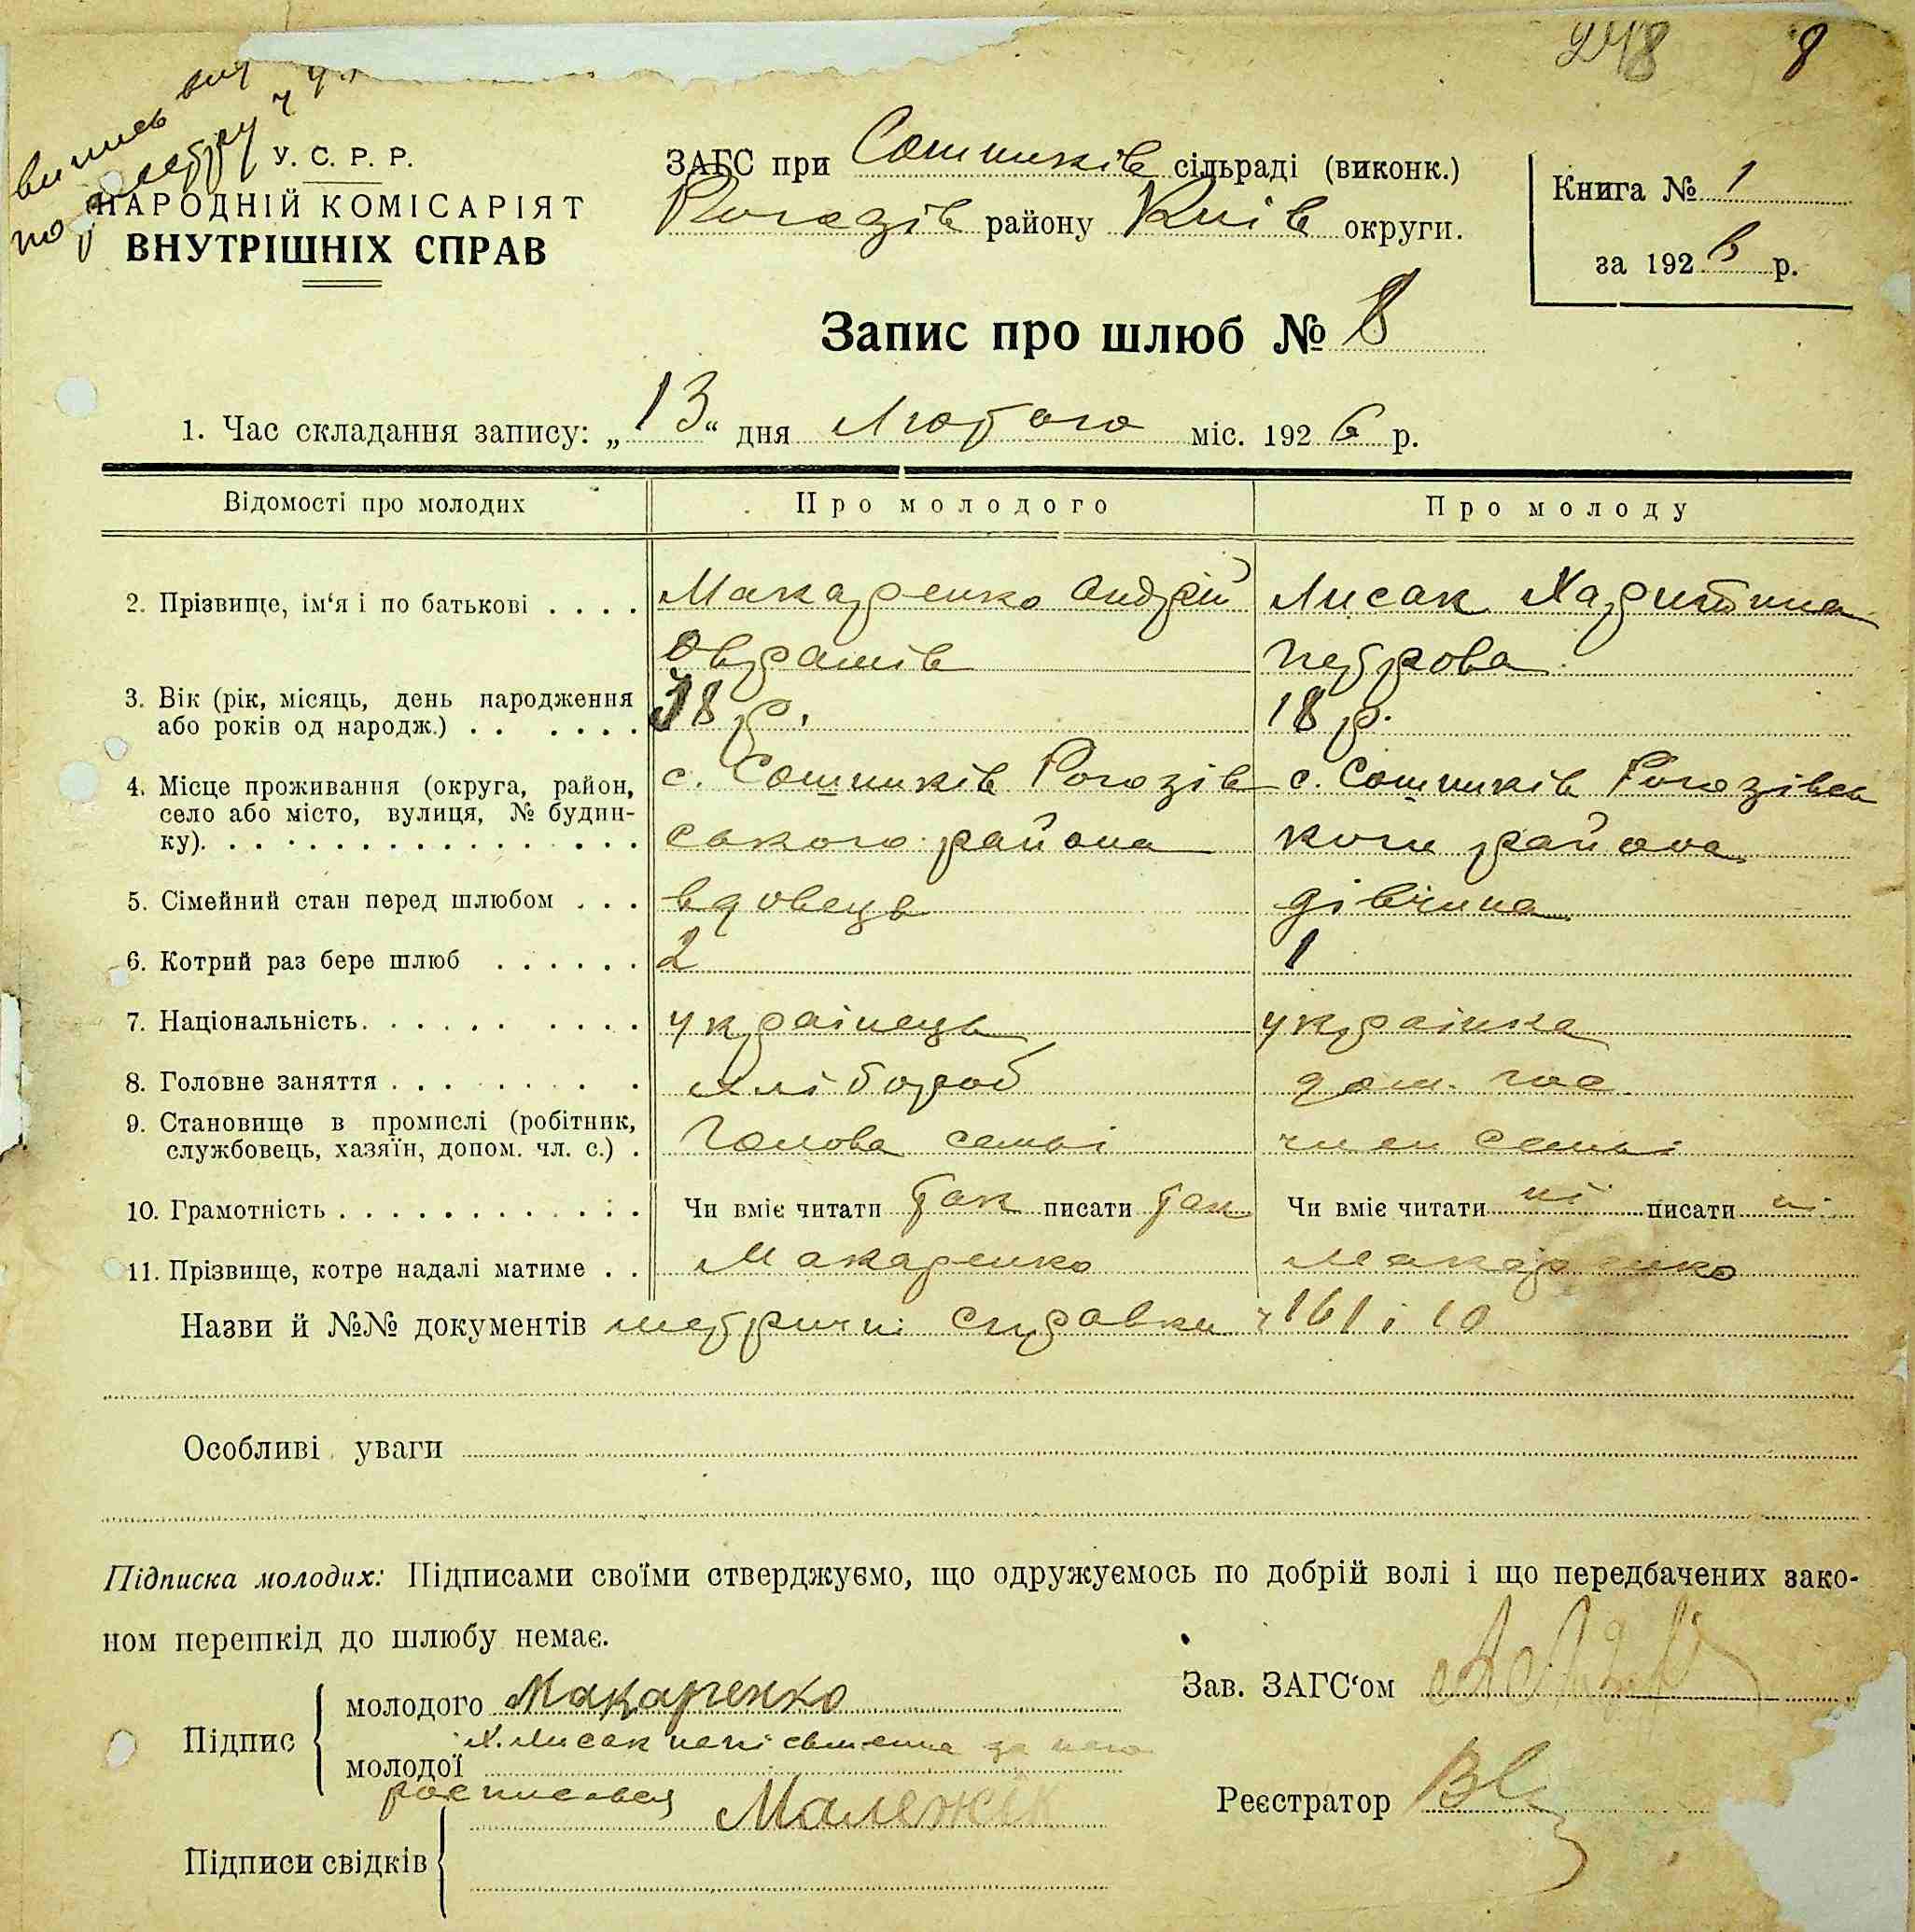 248 8
випись вид
по реєстру ч
У. С. Р. Р.
НАРОДНІЙ КОМІСАРІЯТ
ВНУТРІШНІХ СПРАВ
ЗАГС при Сошників сільраді (виконк.)
Рогозів району Київ округи.
Книга № 1
за 1926 р.
Запис про шлюб № 8
1. Час складання запису: „13“ дня Лютого міс. 1926 р.
Відомості про молодих Про молодого Про молоду
2. Прізвище, ім‘я і по батькові . . . . Макаренко Андрій Лисак Харитина
Оврамів Петрова
3. Вік (рік, місяць, день народження
або років од народж.) . . . . . . 38 р. 18 р.
4. Місце проживання (округа, район, с. Сошників Рогозів с. Сошників Рогозівсь
село або місто, вулиця, № будин-
ку). . . . . . . . . . . . . . . . ського района кого района
5. Сімейний стан перед шлюбом . . . вдовець дівчина
6. Котрий раз бере шлюб . . . . . . 2 1
7. Національність. . . . . . . . . . украінець украінка
8. Головне заняття . . . . . . . . хлібороб дом. гос
9. Становище в промислі (робітник,
службовець, хазяїн, допом. чл. с.) . Голова семьі член семьі
10. Грамотність . . . . . . . . . . . . . Чи вміє читати так писати так Чи вміє читати ні писати ні
11. Прізвище, котре надалі матиме . . Макаренко Макаренко
Назви й №№ документів метричні справки ч 161 і 10
Особливі уваги
Підписка молодих: Підписами своїми стверджуємо, що одружуємось по добрій волі і що передбачених зако-
ном перешкід до шлюбу немає.
Зав. ЗАГС‘ом
Підпис
молодого Макаренко
Х. Лисак непісьменна за него
молодої
росписався Малежик
Реєстратор
Підписи свідків